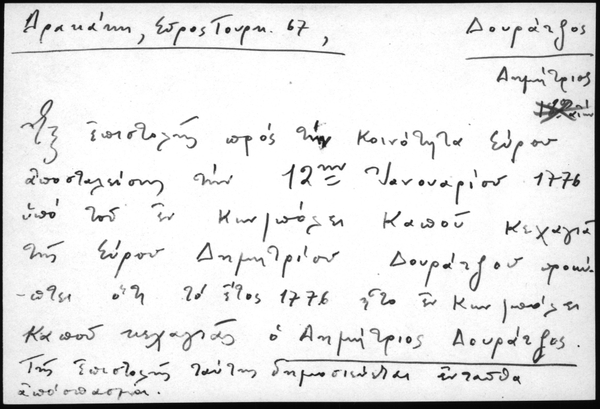 Δρακάκη, Σῦρος Τουρκ. 67, Δουράτζος
Δημήτριος
Ἐξ ἐπιστολῆς πρὸς τὴν Κοινότητα Σύρου
ἀποσταλείσης τὴν 12ην Ἰανουαρίου 1776
ὑπὸ τοῦ ἐν Κων/πόλει Καποῦ Κεχαγιᾶ
τῆς Σύρου Δημητρίου Δουράτζου προκύ-
-πτει ὅτι τὸ ἔτος 1776 ἦτο ἐν Κων/πόλει
Καποῦ κεχαγιᾶς ὁ Δημήτριος Δουράτζος.
Τῆς ἐπιστολῆς ταύτης δημοσιεύεται ἐνταῦθα
ἀπόσπασμα.